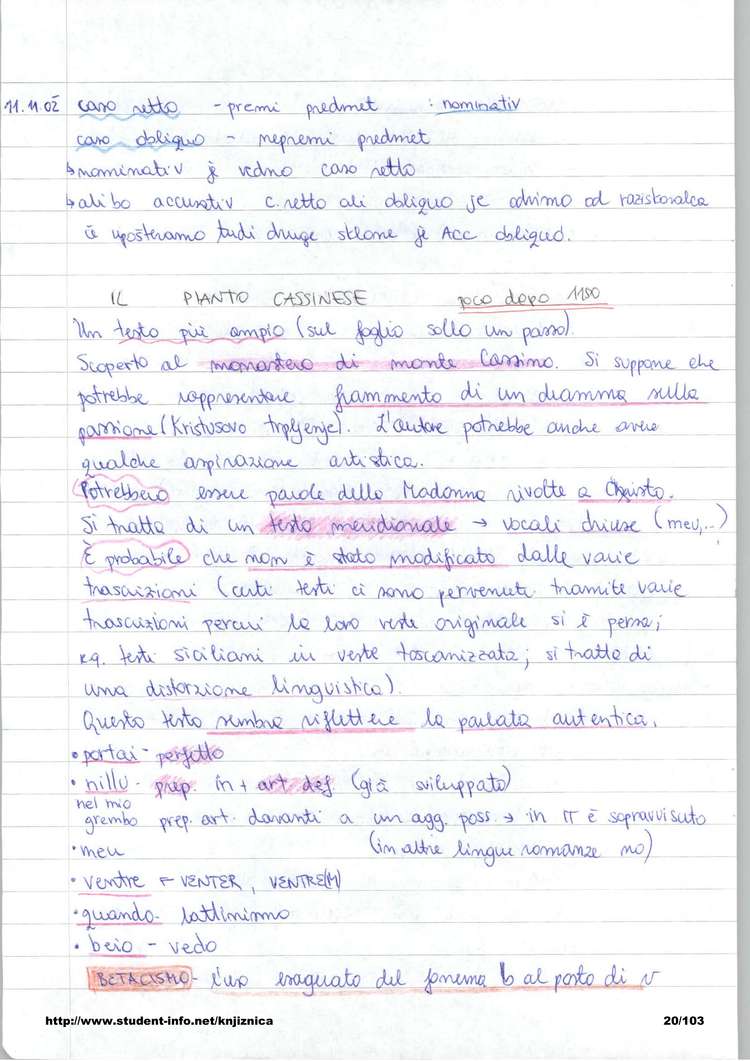 11.11.02 caso retto - premi predmet : nominativ
caso obliquo - nepremi predmet
↳ nominativ je vedno caso retto
↳ ali bo accusativ c. retto ali obliquo je odvisno od raziskovalca
če upoštevamo tudi druge sklone je ACC obliquo.
IL PIANTO CASSINESE poco dopo 1150
Un testo più ampio (sul foglio sollo un passo).
Scoperto al monastero di monte Cassimo. Si suppone che
potrebbe rappresentare frammento di un dramma sulla
passione (Kristusovo trpljenje). L'autore potrebbe anche avere
qualche aspirazione artistica.
Potrebbero essere parole della Madonna rivolte a Christo.
Si tratta di un testo meridionale → vocali chiuse (meu,..)
È probabile che non è stato modificato dalle varie
trascrizioni (certi testi ci sono pervenuti tramite varie
trascrizioni percui la loro veste originale si è persa;
e.g. testi siciliani in veste toscanizzata; si tratta di
una distorzione linguistica).
Questo testo sembra riflettere la parlata autentica.
• portai - perfetto
• nillu - prep. in + art. def. (già sviluppato)
nel mio
grembo prep. art. davanti a un agg. poss. → in IT è sopravvisuto
• meu (in altre lingue romanze no)
• ventre ← VENTER, VENTRE(M)
• quando - lattinismo
• beio - vedo
BETACISMO - l'uso esaguato del fonema b al posto di v
http://www.student-info.net/knjiznica 20/103